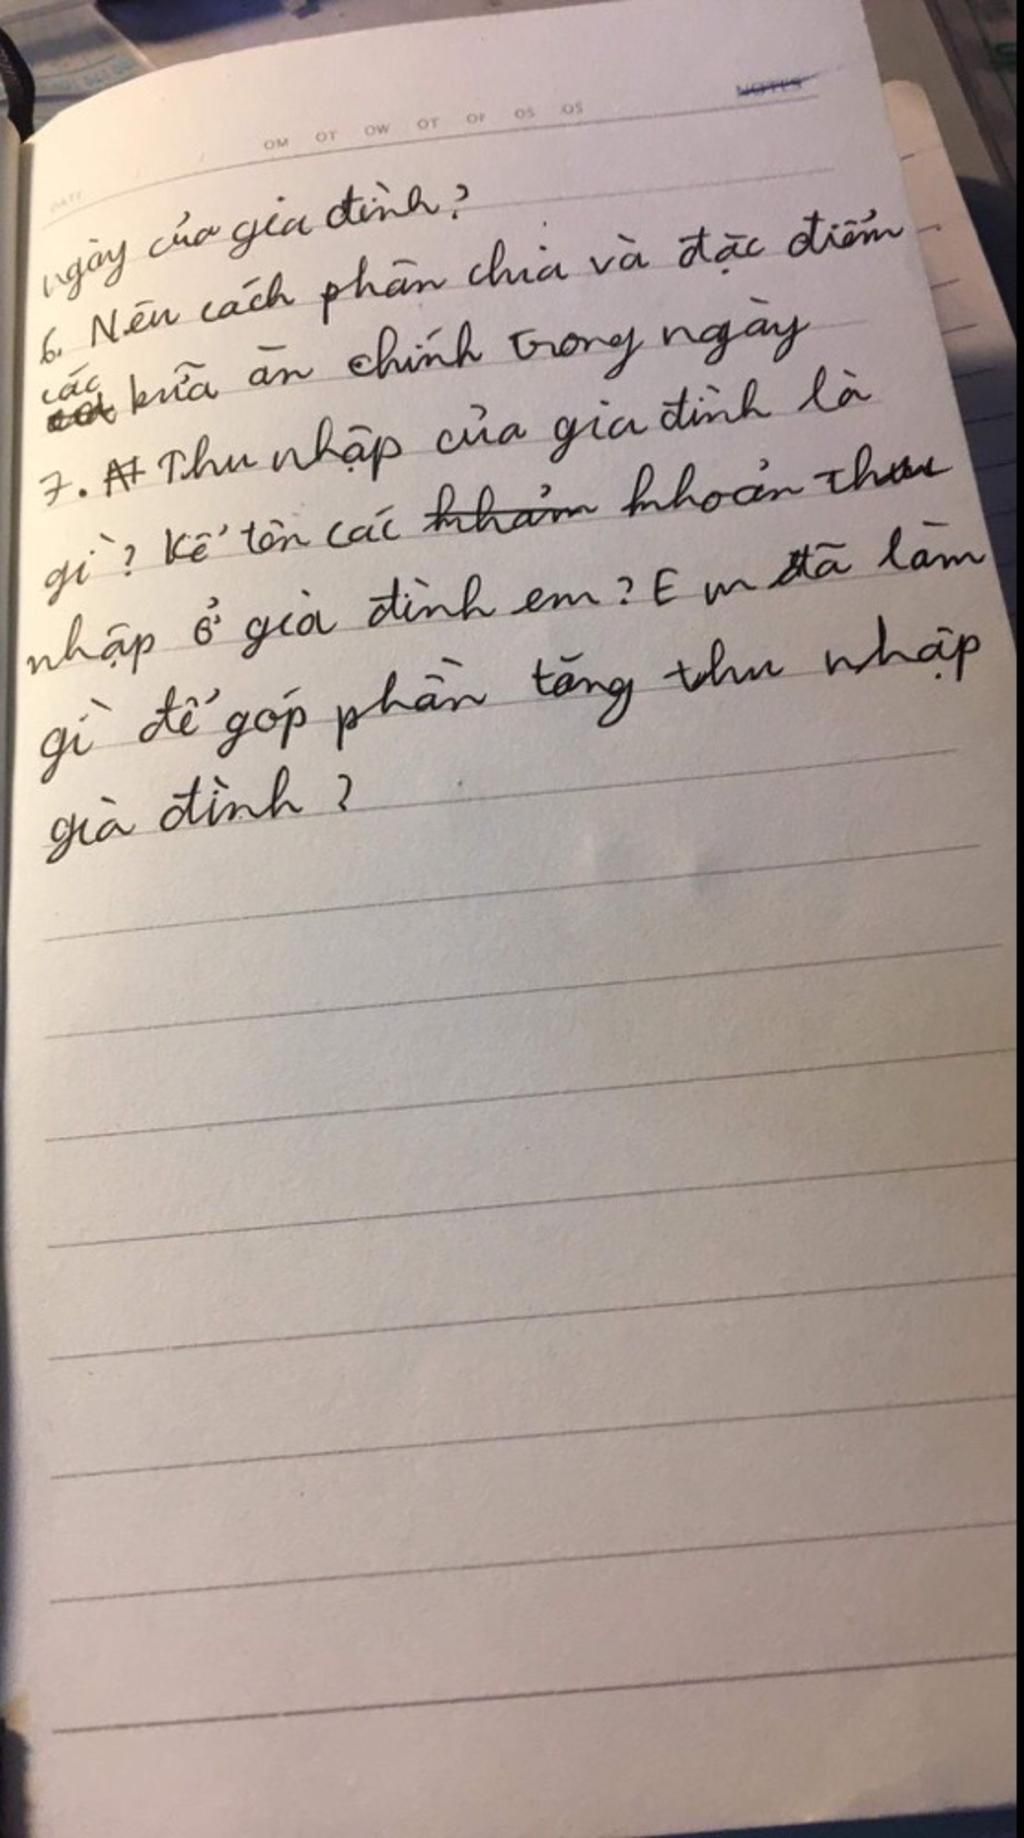 DATE
OM OT OW OT OF OS OS
NOTES
ngày của gia đình?
6. Nêu cách phân chia và đặc điểm
các bữa ăn chính trong ngày
7. Thu nhập của gia đình là
gì? Kể tên các khoản thu
nhập ở gia đình em? Em đã làm
gì để góp phần tăng thu nhập
gia đình?